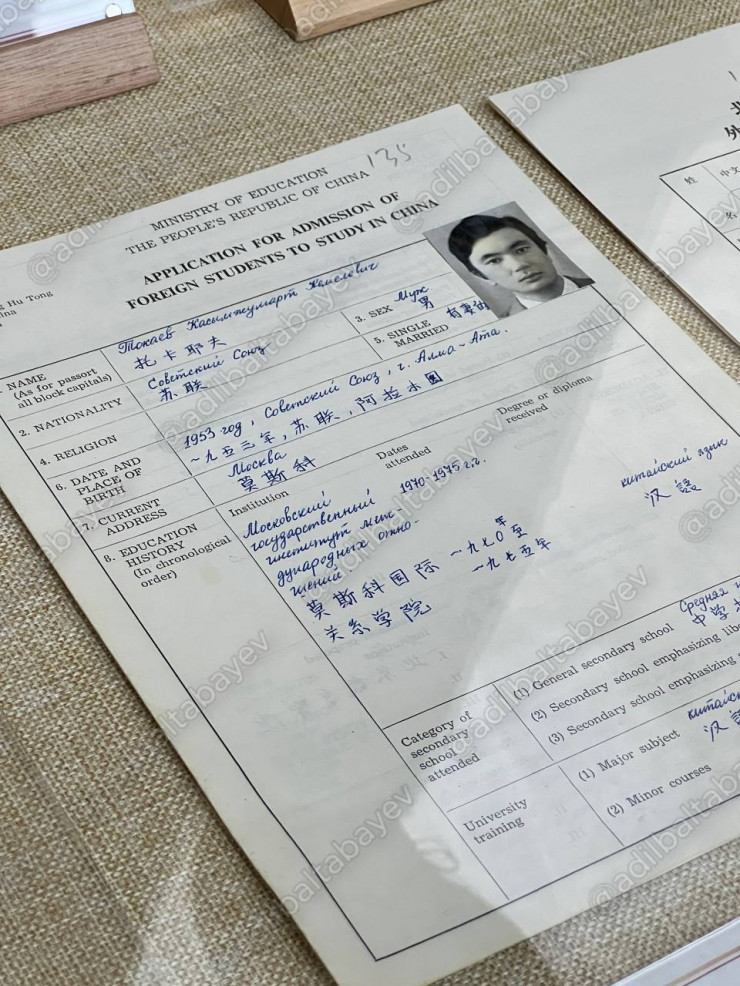 135
MINISTRY OF EDUCATION
THE PEOPLE'S REPUBLIC OF CHINA
APPLICATION FOR ADMISSION OF
FOREIGN STUDENTS TO STUDY IN CHINA
g Hu Tong
ina
NAME
(As for passort
all block capitals)
Токаев Касымжумарт Кемелевич
托卡耶夫
3. SEX Муж
男
2. NATIONALITY
Советский Союз
苏联
5. SINGLE
MARRIED
4. RELIGION
6. DATE AND
PLACE OF
BIRTH
1953 год, Советский Союз, г. Алма-Ата.
一九五三年,苏联,阿拉木图
7. CURRENT
ADDRESS
Москва
莫斯科
8. EDUCATION
HISTORY
(In chronological
order)
Institution
Dates
attended
Degree or diploma
received
Московский
государственный
институт меж-
дународных отно-
шений
1970-1975 г.г.
китайский язык
汉語
莫斯科国际
关系学院
一九七〇年至
一九七五年
Category of
secondary
school
attended
(1) General secondary school Средняя
中学
(2) Secondary school emphasizing
(3) Secondary school emphasizing
University
training
(1) Major subject
汉
(2) Minor courses
中文
名
@adilbaltabayev